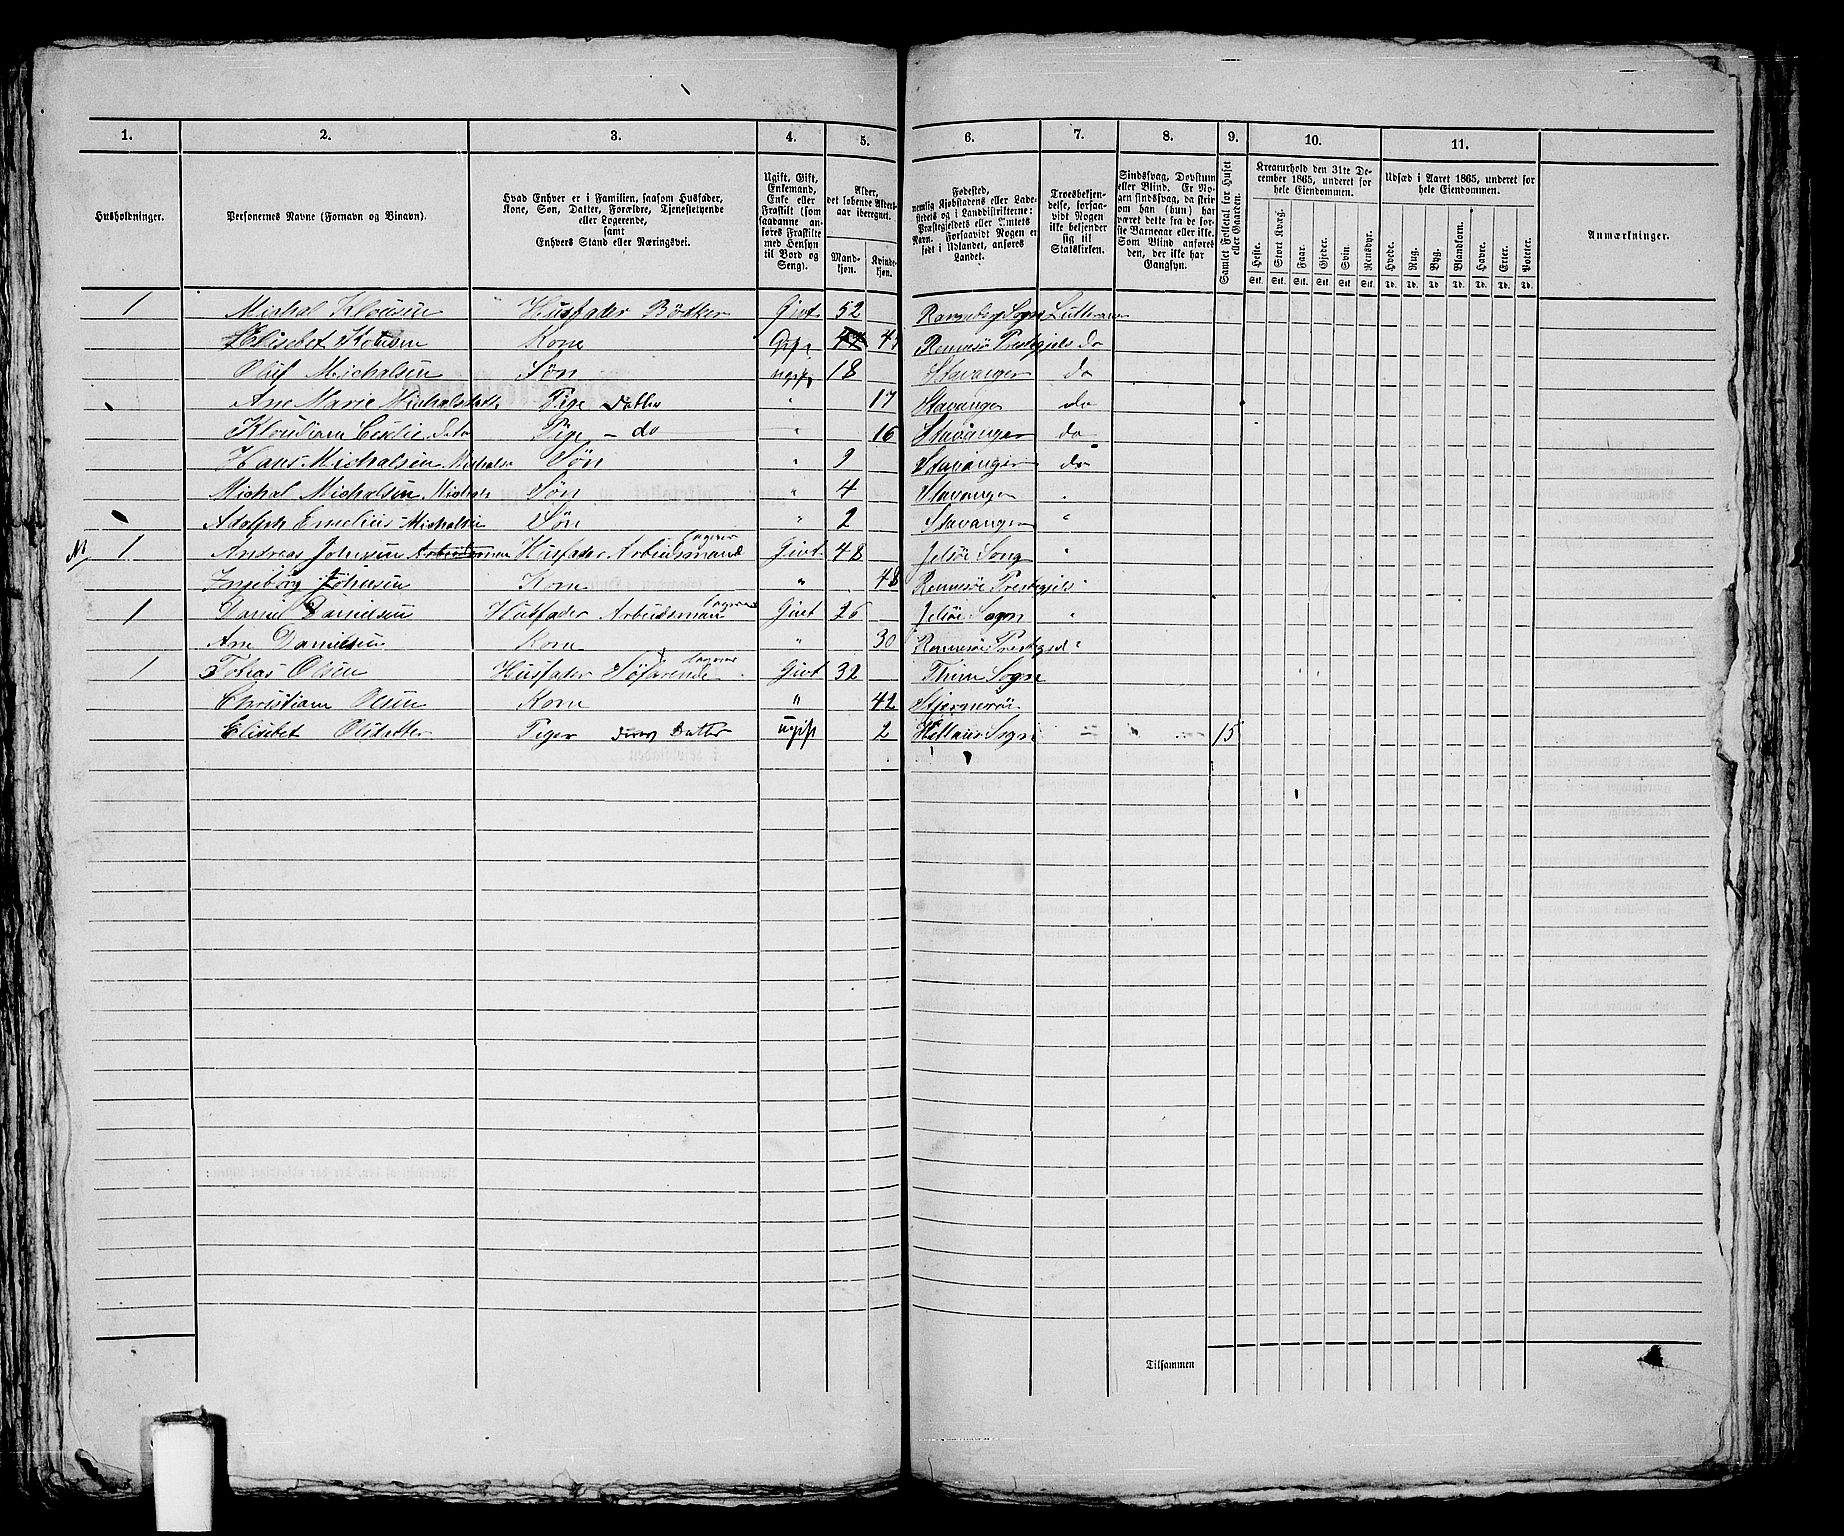 1. 2. 3. 4. 5. 6. 7. 8. 9. 10. 11.
Husholdninger.
Personernes Navne (Fornavn og Binavn).
Hvad Enhver er i Familien, saasom Husfader,
Kone, Søn, Datter, Forældre, Tjenestetyende
eller Logerende,
samt
Enhvers Stand eller Næringsvei.
Ugift, Gift,
Enkemand,
Enke eller
Fraskilt (som
saadanne an-
føres Fraskilte
med Hensyn
til Bord og
Seng).
Alder,
det løbende Alders-
aar iberegnet.
Mand-
kjøn.
Kvinde-
kjøn.
Fødested,
nemlig Kjøbstadens eller Lade-
stedets og i Landdistrikterne:
Præstegjeldets eller Amtets
Navn. Forsaavidt Nogen er
født i Udlandet, anføres
Landet.
Troesbekjen-
delse, forsaa-
vidt Nogen
ikke bekjender
sig til
Statskirken.
Sindssvag, Døvstum
eller Blind. Er No-
gen sindssvag, da skriv
om han (hun) har
været dette fra de før-
ste Barneaar eller ikke.
Som Blind anføres
den, der ikke har
Gangsyn.
Samlet Folketal for Huset
eller Gaarden.
Kreaturhold den 31te De-
cember 1865, underet for
hele Eiendommen.
Heste. Stort Kvæg. Faar. Gjeder. Svin. Rensdyr.
Stk. Stk. Stk. Stk. Stk. Stk.
Udsæd i Aaret 1865, underet for
hele Eiendommen.
Hvede. Rug. Byg. Blandkorn. Havre. Erter. Poteter.
Td. Td. Td. Td. Td. Td. Td.
Anmærkninger.
1 Michal Klousen Husfader Bødker Givt 52 Sogn Lutteraner
Elisebet Kone Rennesø Prestegjels do
Oluf Michalsen Søn 18 Stavanger do
Ane Marie Pige Datter " 17 Stavanger do
Pige - do " 16 Stavanger do
Hans Michalsen Søn " 9 Stavanger do
Michal Michalsen Søn " 4 Stavanger "
Adolph Emelius Michalsen Søn " 2 Stavanger "
1 Andreas Johnsen Husfader Arbeidsmand Givt 48 Jelsøe Song "
Ingeborg Johnsen Kone " 48 Rennesøe Prestegjels "
1 Daniel Danielsen Husfader Arbeidsman Givt 26 Jelsøe Sogn "
Ane Danielsen Kone " 30 Rennesøe "
1 Tobias Olsen Husfader Søfarende Givt 32 Sogn
Christiane Olsen Kone " 42 Stjernerøe
Elisebet Olsdatter Piger Datter ugift 2 Sogn 15
Tilsammen